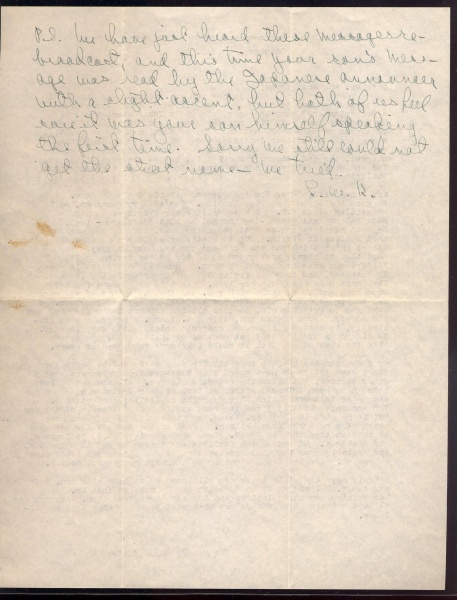 P.S. We have just heard these messages re-
broadcast, and this time your son's mess-
age was read by the Japanese announcer
with a slight accent, but both of us feel
sure it was your son himself speaking
the first time. Sorry we still could not
get the street name - we tried.
L.W.B.